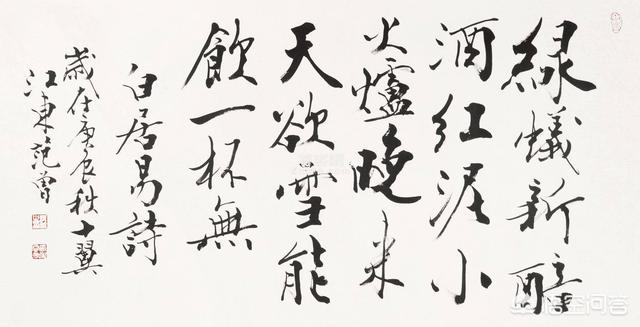 綠蟻新醅
酒紅泥小
火爐晚來
天欲雪能
飲一杯無
白居易詩
歲在庚辰秋十翼
江東范曾
悟空问答